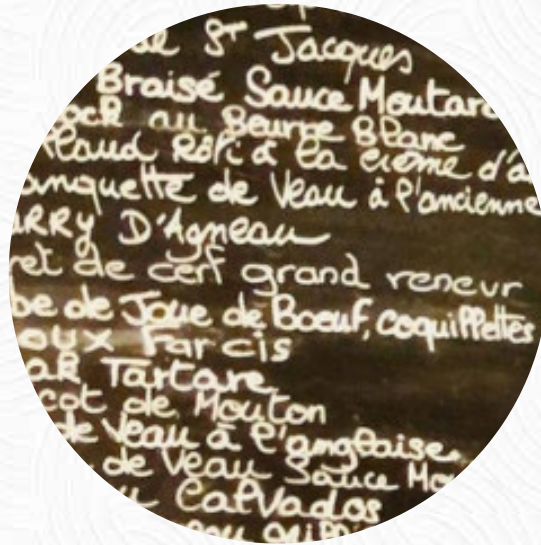 de St Jacques
Braisé Sauce Moutard
ock au Beurre Blanc
laud Rôti à la crème d'a
anquette de Veau à l'ancienne
ARRY D'Agneau
ret de cerf grand veneur
be de Joue de Boeuf, coquillettes
oux Farcis
aR Tartare
cot de Mouton
de Veau à l'anglaise
de Veau Sauce Mo
u Calvados